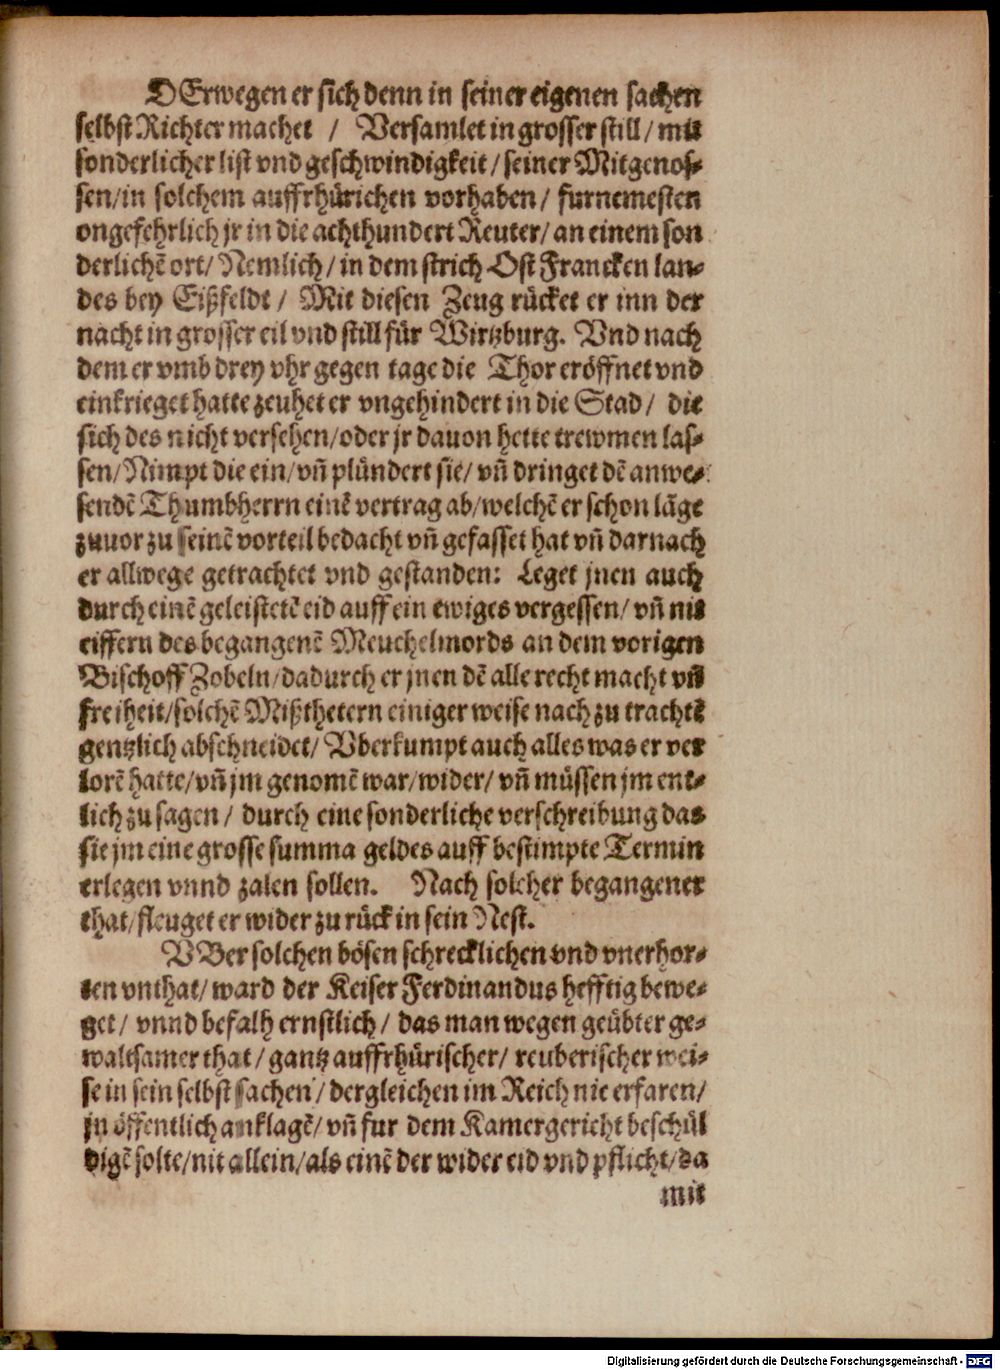 DErwegen er sich denn in seiner eigenen sachen
selbst Richter machet / Versamlet in grosser still / mit
sonderlicher list vnd geschwindigkeit / seiner Mitgenos⸗
sen/in solchem auffrhürichen vorhaben / furnemesten
ongefehrlich jr in die achthundert Reuter/ an einem son
derlichē ort/ Nemlich / in dem strich Ost Francken lan⸗
des bey Eißfeldt / Mit diesen Zeug rücket er inn der
nacht in grosser eil vnd still für Wirtzburg. Vnd nach
dem er vmb drey vhr gegen tage die Thor eröffnet vnd
einkrieget hatte zeuhet er vngehindert in die Stad / die
sich des nicht versehen/oder jr dauon hette trewmen las⸗
sen/Nimpt die ein/vñ plündert sie/ vñ dringet dē anwe⸗
sendē Thumbherrn einē vertrag ab/welchē er schon lāge
zuuor zu seinē vorteil bedacht vñ gefasset hat vñ darnach
er allwege getrachtet vnd gestanden: Leget jnen auch
durch einē geleistetē eid auff ein ewiges vergessen/ vñ nit
eiffern des begangenē Meuchelmords an dem vorigen
Bischoff Zobeln/dadurch er jnen dē alle recht macht vñ
freiheit/solchē Mißthetern einiger weise nach zu trachtē
gentzlich abschneidet/ Vberkumpt auch alles was er ver
lorē hatte/vñ jm genomē war/wider/ vñ müssen jm ent⸗
lich zu sagen / durch eine sonderliche verschreibung das
sie jm eine grosse summa geldes auff bestimpte Termin
erlegen vnnd zalen sollen. Nach solcher begangener
that/fleuget er wider zu rück in sein Nest.
VBer solchen bösen schrecklichen vnd vnerhor⸗
ten vnthat/ ward der Keiser Ferdinandus hefftig bewe⸗
get / vnnd befalh ernstlich / das man wegen geübter ge⸗
waltsamer that / gantz auffrhürischer/ reuberischer wei⸗
se in sein selbst sachen / dergleichen im Reich nie erfaren/
jn öffentlich anklagē/ vñ fur dem Kamergericht beschül
digē solte/nit allein/als einē der wider eid vnd pflicht/da
mit
Digitalisierung gefördert durch die Deutsche Forschungsgemeinschaft - DFG